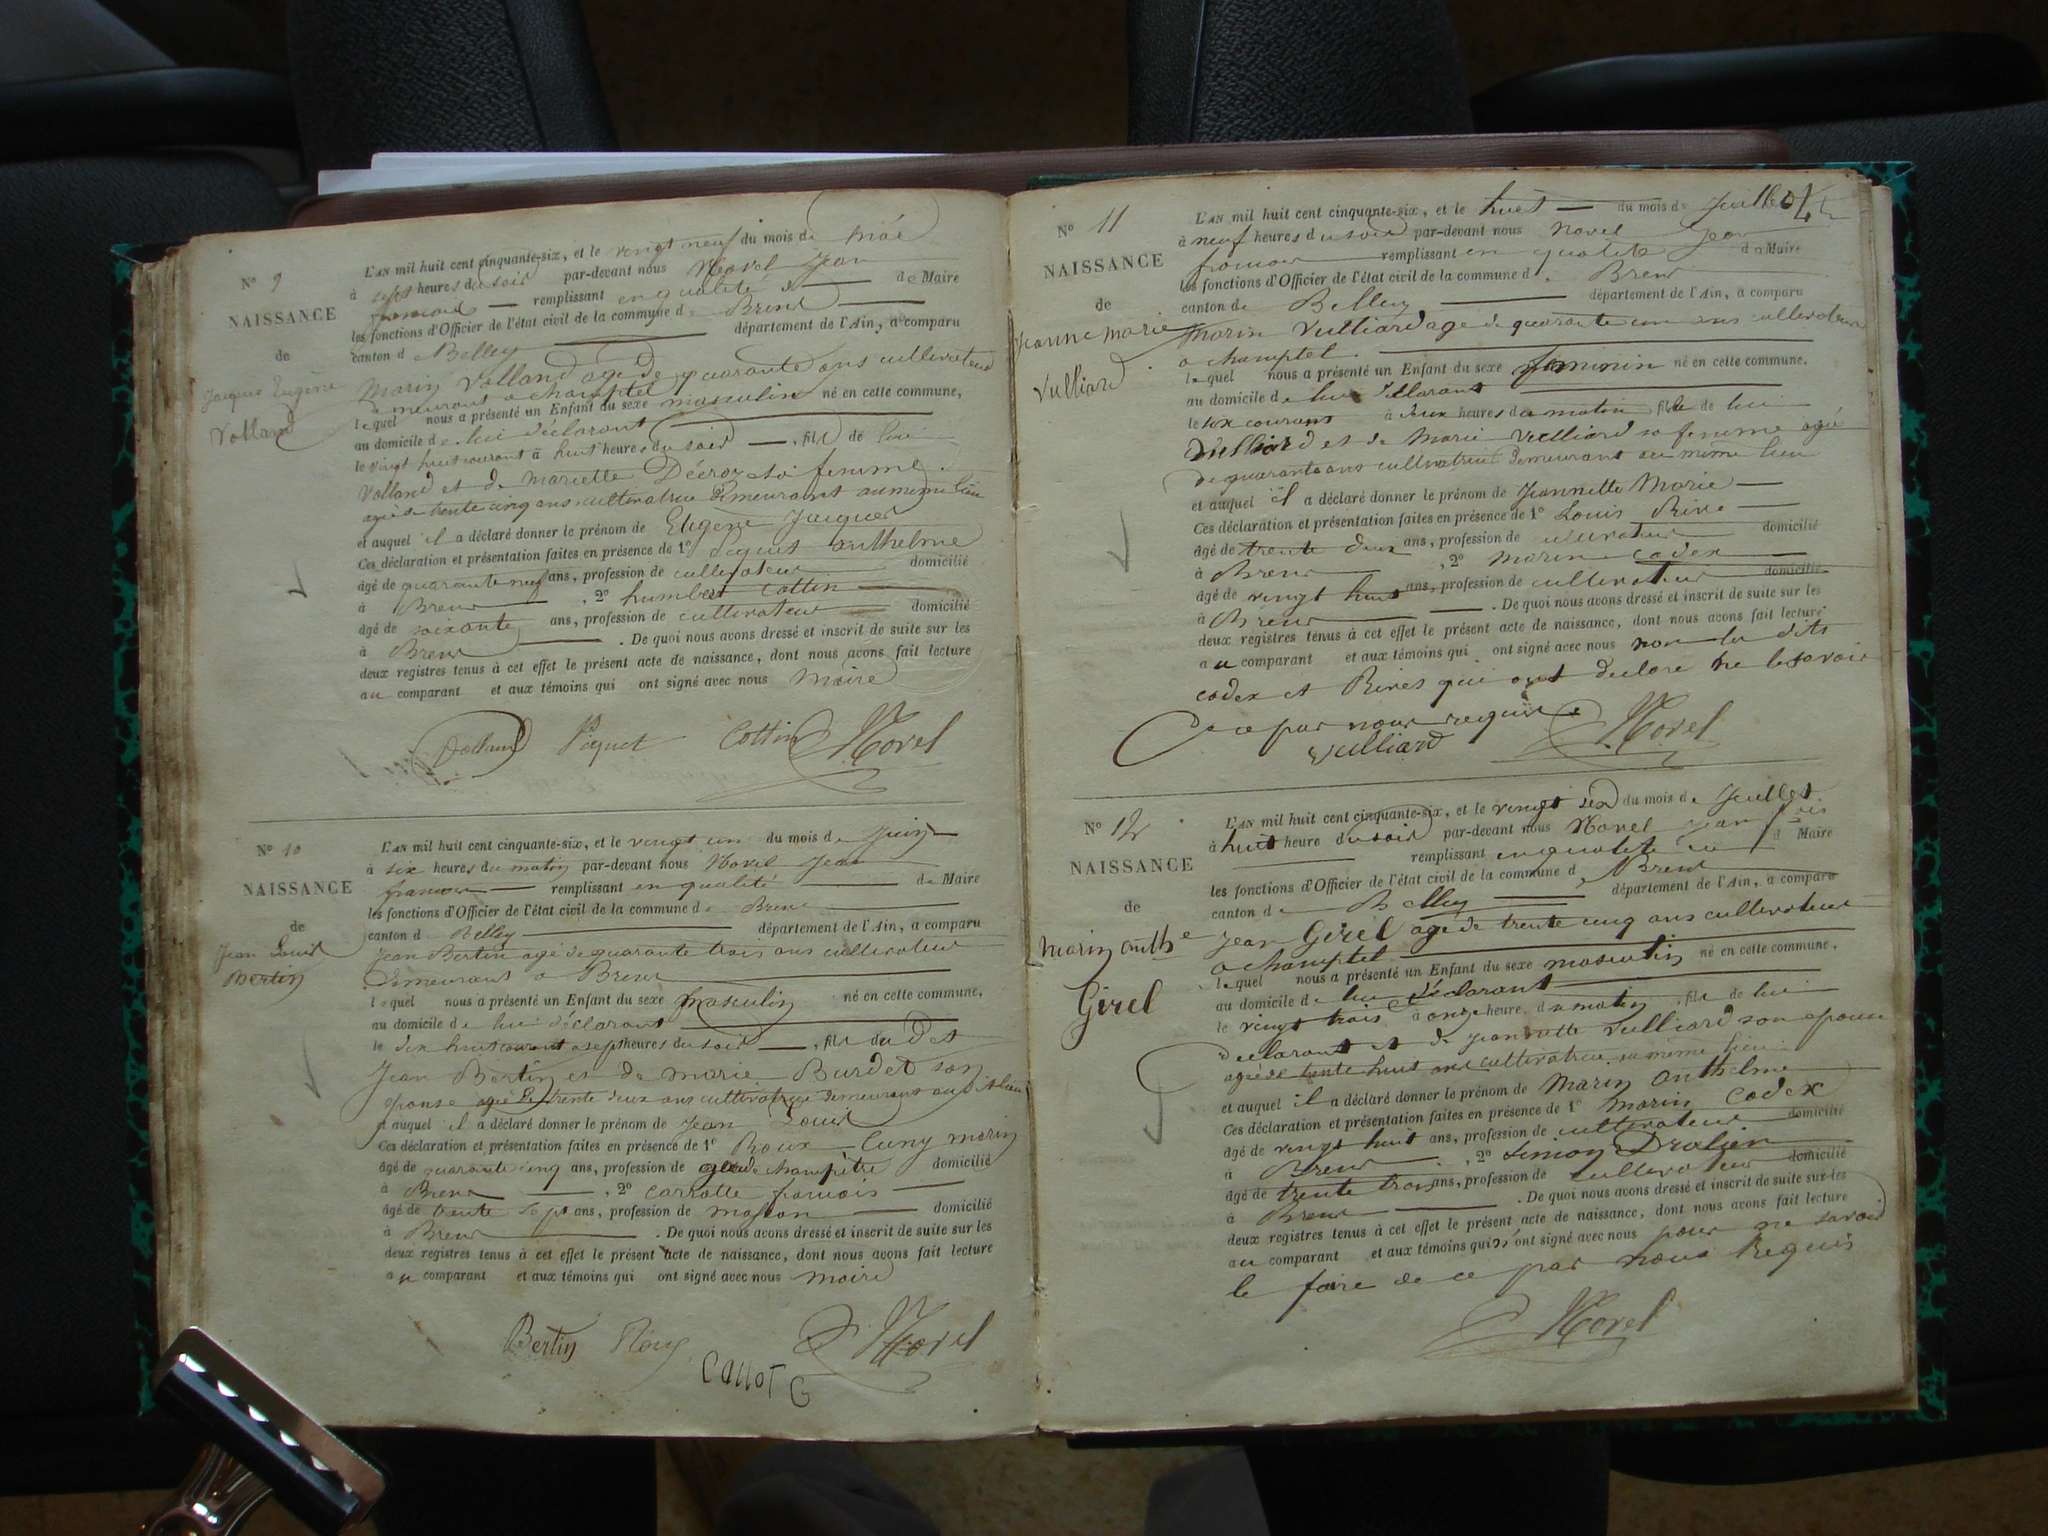 N° 9
NAISSANCE
de
Jacques Eugène
Volland
L'AN mil huit cent cinquante-six, et le vingt neuf du mois de Mai
à sept heures du soir par-devant nous Morel Jean
francois remplissant en qualité de Maire
les fonctions d'Officier de l'état civil de la commune de Brens
canton d Belley département de l'Ain, a comparu
Marin Volland agé de quarante ans cultivateur
demeurant a champtel
lequel nous a présenté un Enfant du sexe masculin né en cette commune,
au domicile de lui déclarant
le vingt huit courant à huit heures du soir, fils de lui
Volland et de mariette Décroz sa femme
agée de trente cinq ans cultivatrice demeurant au meme lieu
et auquel il a déclaré donner le prénom de Eugène Jacques
Ces déclaration et présentation faites en présence de 1° Piquet anthelme
âgé de quarante neuf ans, profession de cultivateur domicilié
à Brens, 2° humbert Cottin
âgé de soixante ans, profession de cultivateur domicilié
à Brens. De quoi nous avons dressé et inscrit de suite sur les
deux registres tenus à cet effet le présent acte de naissance, dont nous avons fait lecture
au comparant et aux témoins qui ont signé avec nous Maire
Volland Piquet Cottin Morel
N° 10
NAISSANCE
de
Jean Louis
Bertin
L'AN mil huit cent cinquante-six, et le vingt un du mois de Juin
à six heures du matin par-devant nous Morel Jean
francois remplissant en qualité de Maire
les fonctions d'Officier de l'état civil de la commune de Brens
canton d Belley département de l'Ain, a comparu
Jean Bertin agé de quarante trois ans cultivateur
demeurant a Brens
lequel nous a présenté un Enfant du sexe masculin né en cette commune,
au domicile de lui déclarant
le dix huit courant a sept heures du soir, fils du d et
Jean Bertin et de marie Burdet son
epouse agée de trente deux ans cultivatrice demeurant au dit lieu
et auquel il a déclaré donner le prénom de Jean Louis
Ces déclaration et présentation faites en présence de 1° Roux Cuny marin
âgé de quarante cinq ans, profession de garde champêtre domicilié
à Brens, 2° carrotte francois
âgé de trente sept ans, profession de maçon domicilié
à Brens. De quoi nous avons dressé et inscrit de suite sur les
deux registres tenus à cet effet le présent acte de naissance, dont nous avons fait lecture
au comparant et aux témoins qui ont signé avec nous maire
Bertin Roux Morel
N° 11
NAISSANCE
de
Jeanne Marie
Vulliard
L'AN mil huit cent cinquante-six, et le huit du mois de Juillet
à neuf heures du soir par-devant nous Morel Jean
francois remplissant en qualité de Maire
les fonctions d'Officier de l'état civil de la commune d Brens
canton de Belley département de l'Ain, a comparu
Marin Vulliard agé de quarante un ans cultivateur
a champtel
lequel nous a présenté un Enfant du sexe feminin né en cette commune.
au domicile de lui déclarant
le six courant à deux heures du matin fille de lui
Vulliard et de Marie Vulliard sa femme agée
de quarante ans cultivatrice demeurant au même lieu
et auquel il a déclaré donner le prénom de Jeannette Marie
Ces déclaration et présentation faites en présence de 1° Louis Rive
âgé de trente deux ans, profession de cultivateur domicilié
à Brens, 2° Marin Codex
âgé de vingt huit ans, profession de cultivateur domicilié
à Brens. De quoi nous avons dressé et inscrit de suite sur les
deux registres tenus à cet effet le présent acte de naissance, dont nous avons fait lecture
au comparant et aux témoins qui ont signé avec nous non les dits
codex et Rives qui ont declaré ne le savoir
De ce par nous requis
Vulliard Morel
N° 12
NAISSANCE
de
Marin anthe
Girel
L'AN mil huit cent cinquante-six, et le vingt six du mois de Juillet
à huit heure du soir par-devant nous Morel Jean fcois
remplissant en qualité de Maire
les fonctions d'Officier de l'état civil de la commune d Brens
canton de Belley département de l'Ain, a comparu
Jean Girel agé de trente cinq ans cultivateur
a champtel
lequel nous a présenté un Enfant du sexe masculin né en cette commune,
au domicile de lui déclarant
le vingt trois à onze heure du matin, fils de lui
declarant et de Jeannette Vulliard son epouse
agée de trente huit ans cultivatrice au même lieu
et auquel il a déclaré donner le prénom de Marin Anthelme
Ces déclaration et présentation faites en présence de 1° Marin Codex
âgé de vingt huit ans, profession de cultivateur domicilié
à Brens, 2° Simon Drolien
âgé de trente trois ans, profession de cultivateur domicilié
à Brens. De quoi nous avons dressé et inscrit de suite sur les
deux registres tenus à cet effet le présent acte de naissance, dont nous avons fait lecture
au comparant et aux témoins qui n'ont signé avec nous pour ne savoir
le faire de ce par nous Requis
Morel